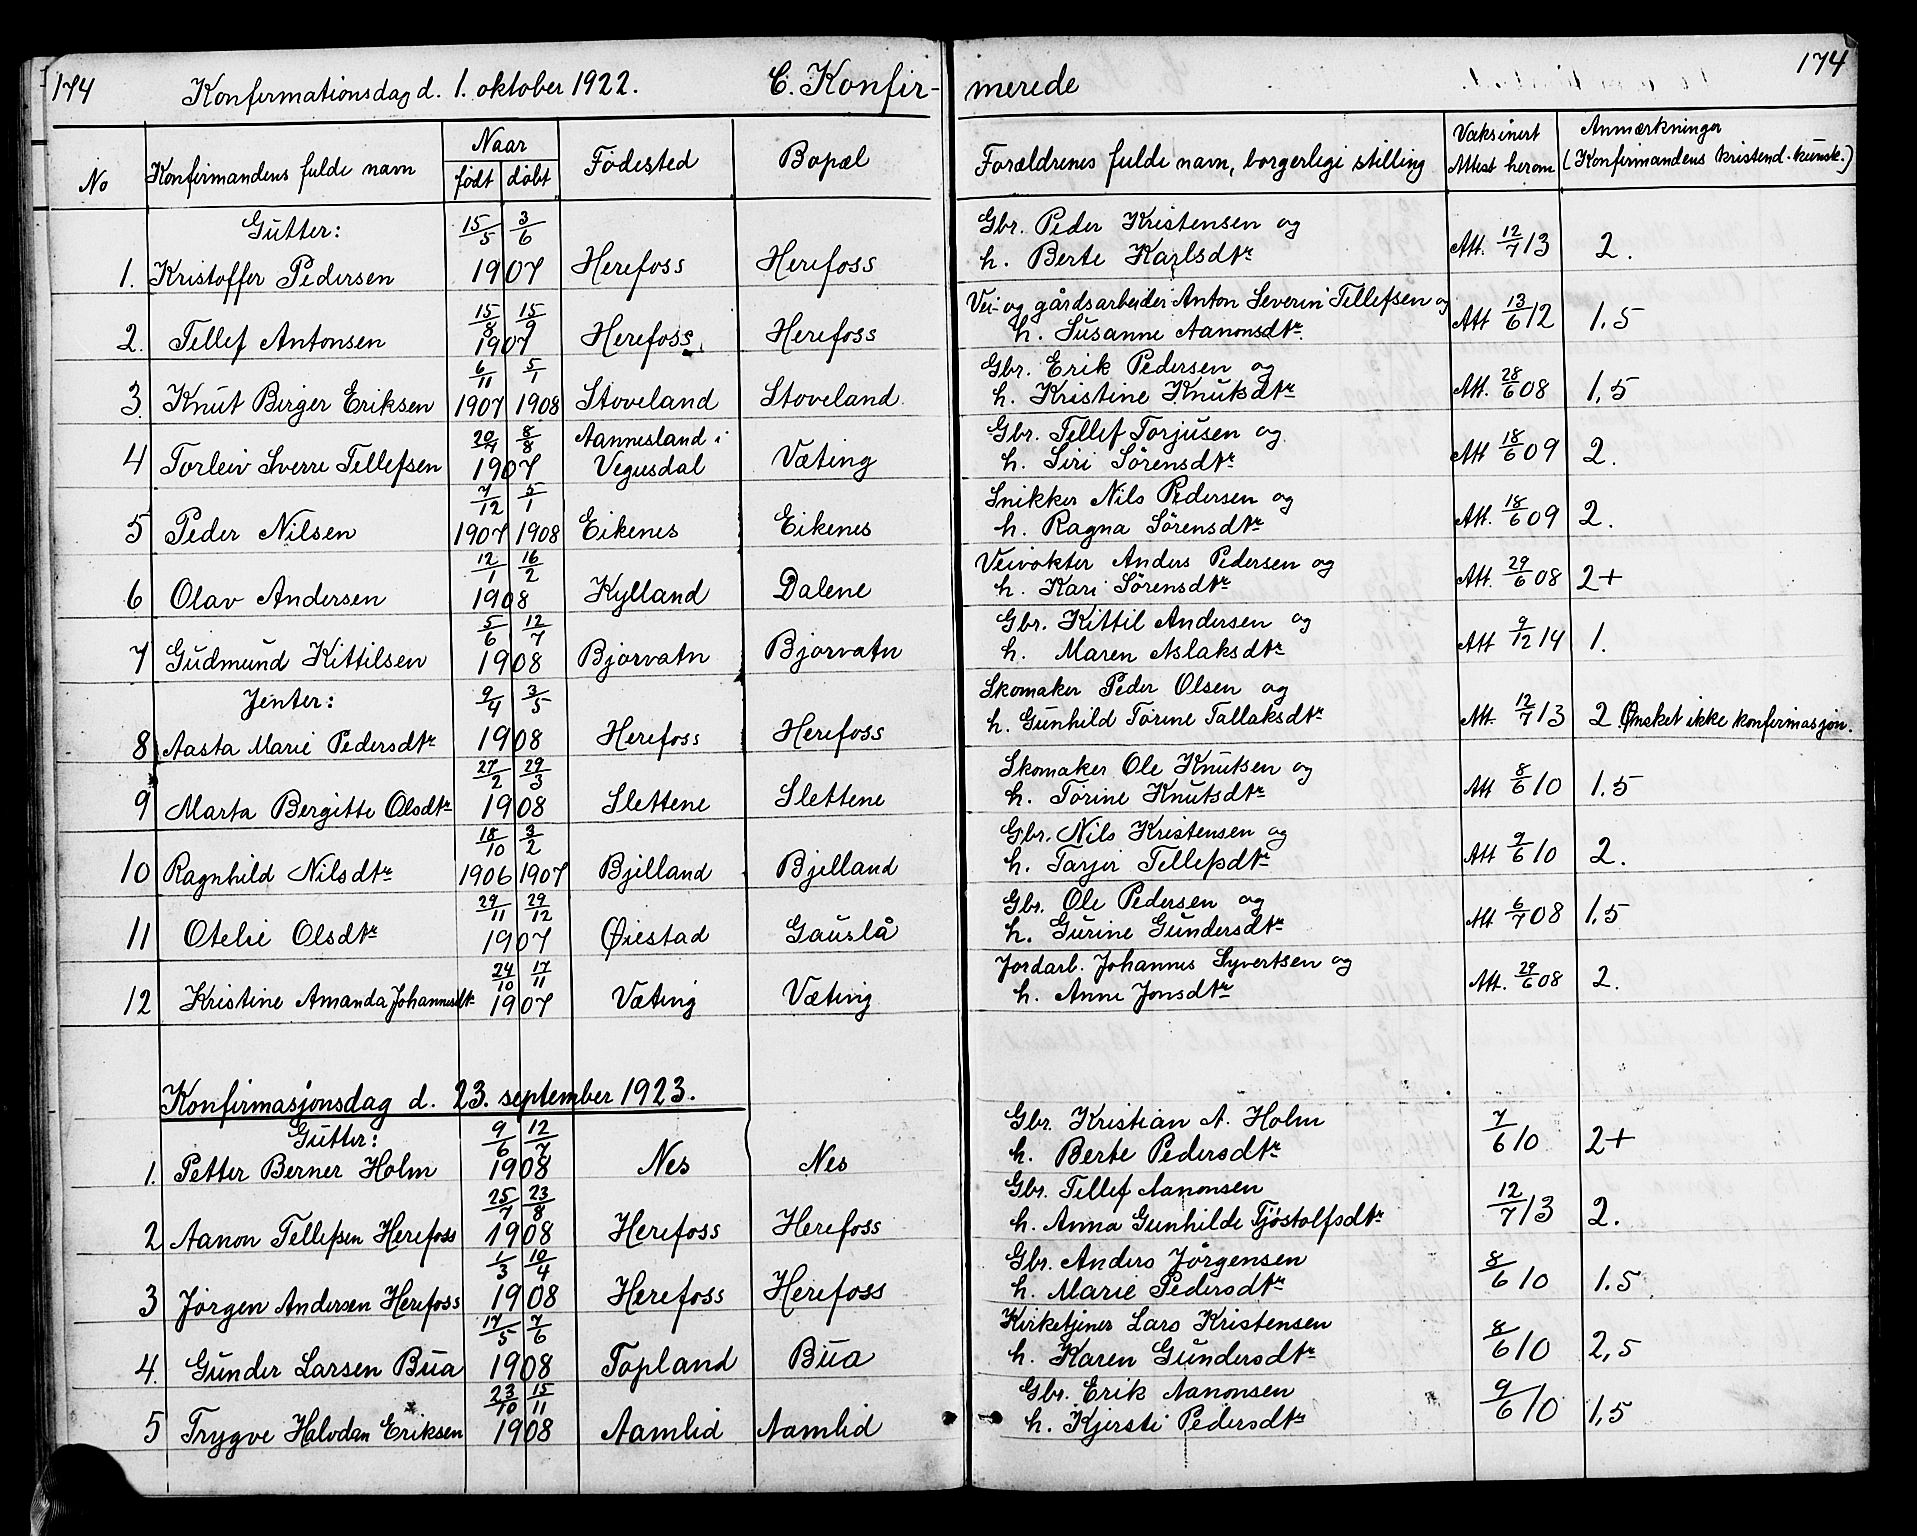 174 Konfirmationsdag d. 1. oktober 1922. C. Konfir- merede 174
No Konfirmandens fulde navn Naar født døbt Födested Bopæl Forældrenes fulde navn, borgerlige stilling Vaksinert Attest herom Anmærkninger (Konfirmandens kristend.kunsk.)
Gutter: 15/5 3/6 Gbr. Peder Kristensen og
1. Kristoffer Pedersen 1907 Herefoss Herefoss h. Berte Karlsdtr Att. 12/7 13 2.
15/8 15/9 Vei- og gårdsarbeider Anton Severin Tellefsen og
2. Tellef Antonsen 1907 Herefoss Herefoss h. Susanne Aanonsdtr. Att 13/6 12 1.5
6/11 5/1 Gbr. Erik Pedersen og
3. Knut Birger Eriksen 1907 1908 Stoveland Stoveland h. Kristine Knutsdtr Att. 28/6 08 1,5
20/4 8/8 Aannesland i Gbr. Tellef Torjusen og
4 Torleiv Sverre Tellefsen 1907 Vegusdal Væting h. Siri Sörensdtr Att 18/6 09 2.
7/12 5/1 Snikker Nils Pedersen og
5 Peder Nilsen 1907 1908 Eikenes Eikenes h. Ragna Sörensdtr Att. 18/6 09 2.
12/1 16/2 Veivokter Anders Pedersen og
6 Olav Andersen 1908 Kylland Dalene h. Kari Sörensdtr Att. 29/6 08 2+
5/6 12/7 Gbr. Kittil Andersen og
7 Gudmund Kittilsen 1908 Bjorvatn Bjorvatn h. Maren Aslaksdtr Att 9/12 14 1.
Jenter: 9/4 3/5 Skomaker Peder Olsen og
8 Aasta Marie Pedersdtr 1908 Herefoss Herefoss h. Gunhild Torine Tallaksdtr Att. 12/7 13 2 Ønsket ikke konfirmasjon.
27/2 29/3 Skomaker Ole Knutsen og
9 Marta Bergitte Olsdtr 1908 Slettene Slettene h. Torine Knutsdtr Att 8/6 10 1.5
18/10 3/2 Gbr. Nils Kristensen og
10 Ragnhild Nilsdtr 1906 1907 Bjelland Bjelland h. Tarjer Tellefsdtr Att 9/6 10 2.
29/11 29/12 Gbr. Ole Pedersen og
11 Otelie Olsdtr 1907 Øiestad Gauslå h. Gurine Gundersdtr Att 6/7 08 1.5
24/10 17/11 Jordarb. Johannes Syvertsen og
12 Kristine Amanda Johannesdtr 1907 Væting Væting h. Anne Jonsdtr Att. 29/6 08 2.
Konfirmasjonsdag d. 23. september 1923.
Gutter: 9/6 12/7 Gbr. Kristian A. Holm
1. Petter Berner Holm 1908 Nes Nes h. Berte Pedersdtr 7/6 10 2+
25/7 23/8 Gbr. Tellef Aanonsen
2 Aanon Tellefsen Herefoss 1908 Herefoss Herefoss h. Anna Gunhilde Tjöstolfsdtr 12/7 13 2.
1/3 10/4 Gbr. Anders Jörgensen
3 Jörgen Andersen Herefoss 1908 Herefoss Herefoss h. Marie Pedersdtr 8/6 10 1.5
17/5 7/6 Kirketjener Lars Kristensen
4. Gunder Larsen Bua 1908 Topland Bua h. Karen Gundersdtr 8/6 10 2,5
23/10 15/11 Gbr. Erik Aanonsen
5 Trygve Halvdan Eriksen 1908 Aamlid Aamlid h. Kjersti Pedersdtr 9/6 10 1,5